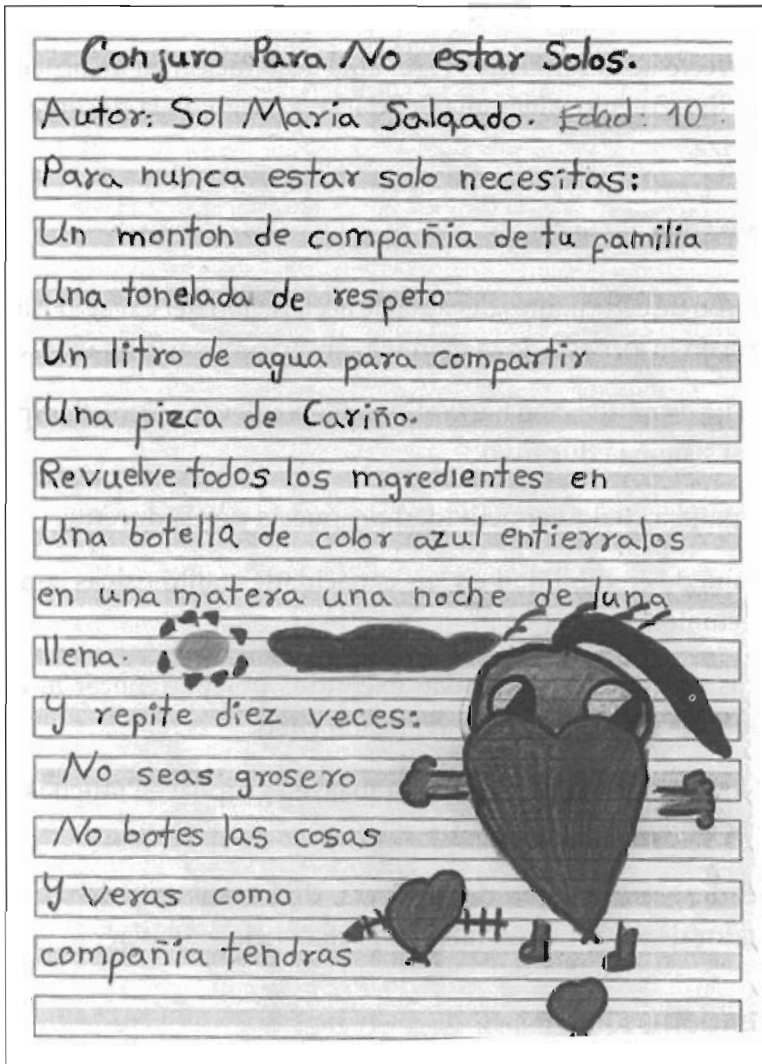 Conjuro Para No estar Solos.
Autor: Sol María Salgado. Edad: 10.
Para nunca estar solo necesitas:
Un monton de compañia de tu familia
Una tonelada de respeto
Un litro de agua para compartir
Una pizca de Cariño.
Revuelve todos los ingredientes en
Una botella de color azul entierralos
en una matera una noche de luna
llena.
Y repite diez veces:
No seas grosero
No botes las cosas
Y veras como
compañía tendras